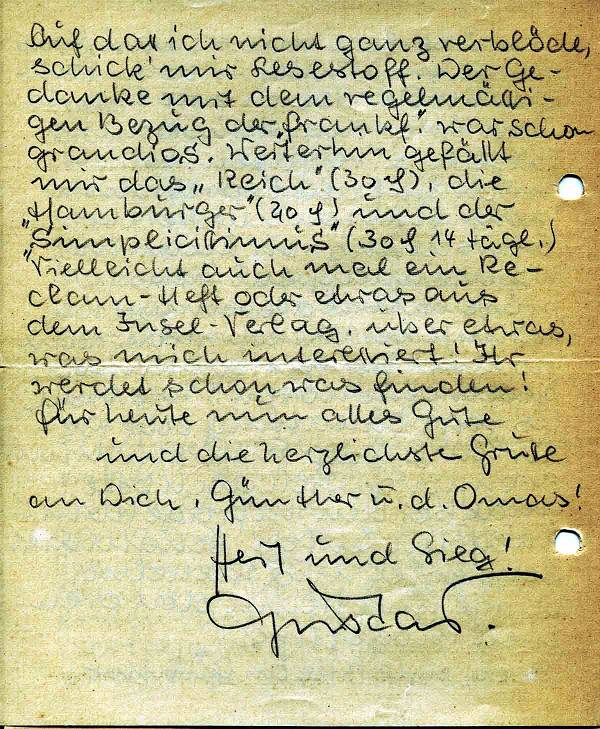 Auf das ich nicht ganz verblöde,
schick' mir Lesestoff. Der Ge-
danke mit dem regelmäßi-
gen Bezug der „Frankf." war schon
grandios. Weiterhin gefällt
mir das „Reich" (30 ₰), die
„Hamburger" (20 ₰) und der
„Simplicissimus" (30 ₰ 14 tägl.)
Vielleicht auch mal ein Re-
clam-Heft oder etwas aus
dem Insel-Verlag, über etwas,
was mich interessiert! Ihr
werdet schon was finden!
Für heute nun alles Gute
und die herzlichste Grüße
an Dich, Günther u. d. Omas!
Heil und Sieg!
Gustav.